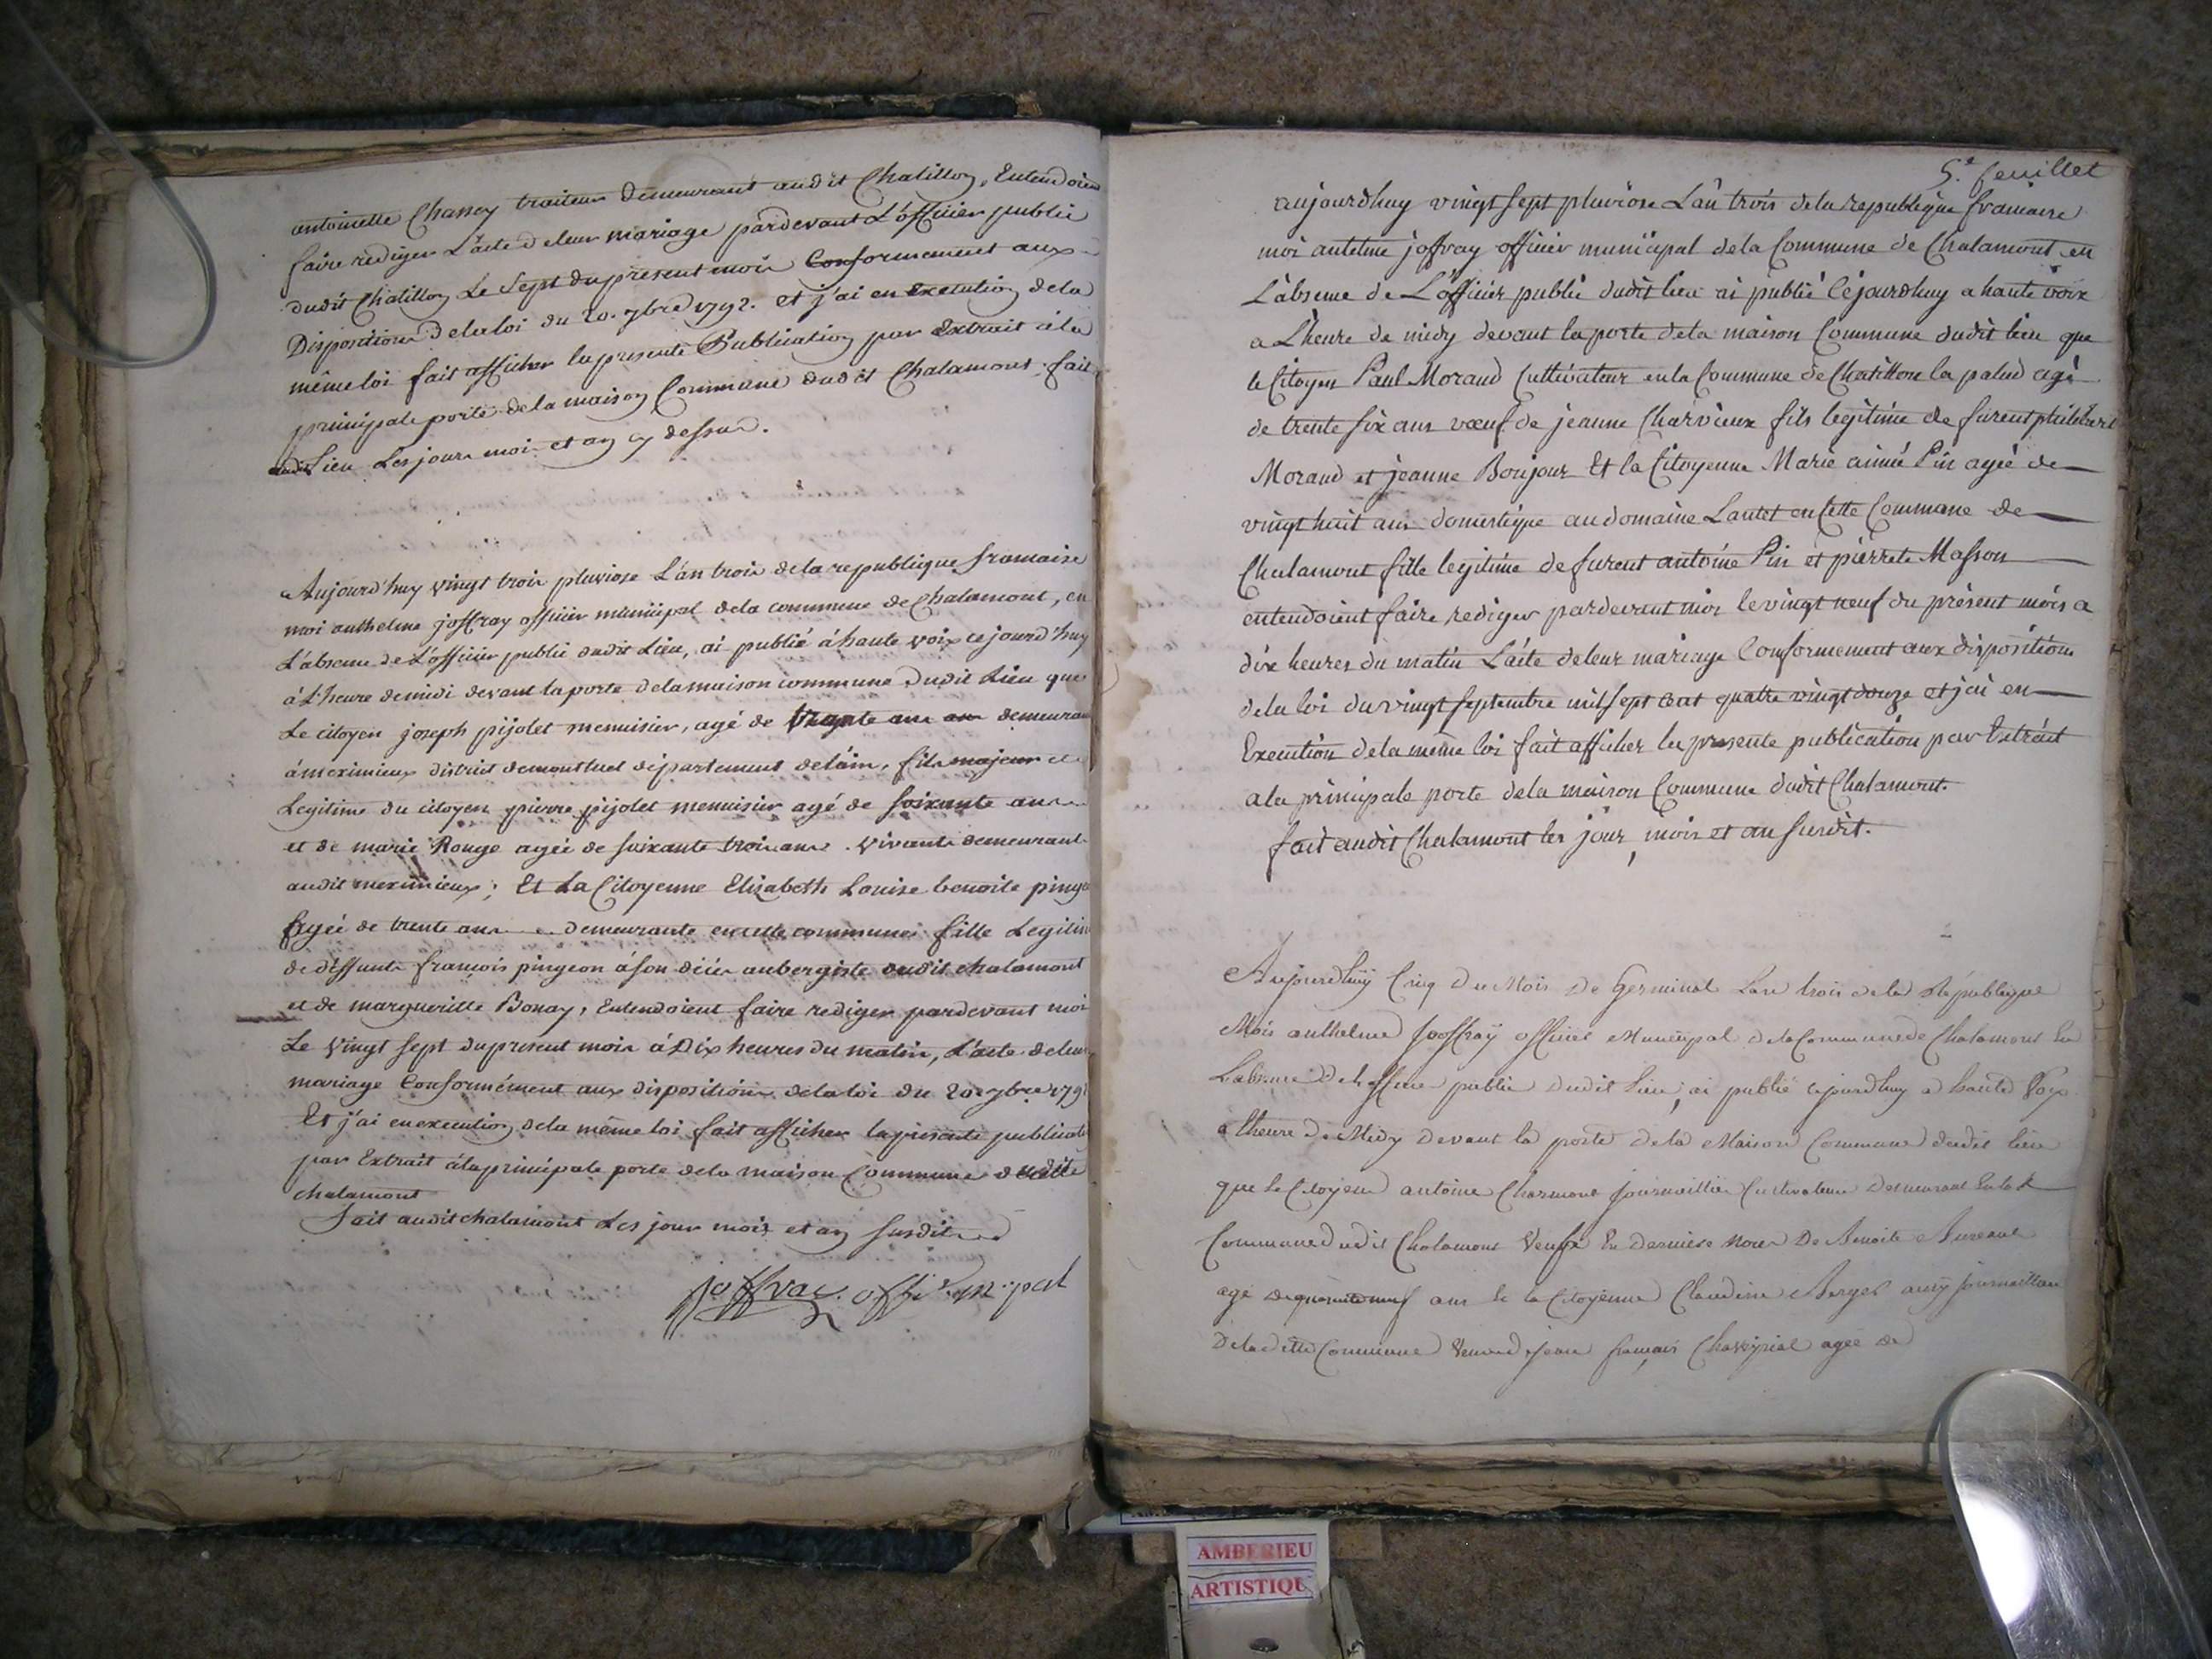 antoinette Chassey traiteur demeurant audit Chatillon, Entendoient
faire rediger L'acte de leur mariage pardevant L'officier public
dudit Chatillon Le Sept du present mois Conformement aux
Dispositions de la loi du 20. 7bre 1792. et j'ai en Execution de la
même loi fait afficher la presente Publication par Extrait à la
principale porte de la maison Commune dudit Chalamont; fait
audit Lieu Les jours mois et an cy dessus.
Aujourd'huy vingt trois pluviose L'an trois de la republique francaise
moi anthelme joffray officier municipal de la commune de Chalamont, en
L'absence de L'officier public dudit Lieu, ai publié à haute voix ce jourd'huy
à L'heure de midi devant la porte de la maison commune dudit Lieu que
Le citoyen joseph pijolet menuisier, agé de trente ans demeurant
à meximieux district de montluel département de l'ain, fils majeur et
Legitime du citoyen pierre pijolet menuisier agé de soixante ans
et de marie Rouge agée de soixante trois ans . vivants demeurant
audit meximieux; Et La Citoyenne Elizabeth Louise benoite pingeon
agée de trente ans demeurante en cette commune fille Legitime
de deffunts françois pingeon à son décès aubergiste dudit chalamont
et de margueritte Bonay, Entendoient faire rediger pardevant moi
Le vingt sept du present mois à Dix heures du matin, L'acte de leur
mariage Conformément aux dispositions de la loi du 20 7bre 179
Et j'ai en execution de la même loi fait afficher la présente publication
par Extrait à la principale porte de la maison Commune dudit
chalamont
Fait audit chalamont Les jour mois et an susdits
joffray. offi.r m.pal
5.e feuillet
aujourdhuy vingt sept pluviose L'an trois de la republique francaise
moi antelme joffray officier municipal de la Commune de Chalamont en
L'absence de L'officier public dudit lieu ai publié Cejourdhuy a haute voix
a L'heure de midy devant la porte de la maison Commune dudit lieu que
le Citoyen Paul Morand Cultivateur en la Commune de Chatillon la palud agé
de trente six ans vœuf de jeanne Charvieux fils legitime de furent philibert
Morand et jeanne Bonjour Et la Citoyenne Marie aimée Pin agée de
vingt huit ans domestique au domaine Lautet en Cette Commune de
Chalamont fille legitime de furent antoine Pin et pierrete Masson
entendoient faire rediger pardevant moi le vingt neuf du présent mois a
dix heures du matin L'acte de leur mariage Conformement aux dispositions
de la loi du vingt septembre mil sept cent quatre vingt douze et j'ai en
Execution de la meme loi fait afficher la presente publication par Extrait
a la principale porte de la maison Commune dudit Chalamont.
fait audit Chalamont les jour, mois et an susdit.
Aujourdhuy Cinq du Mois de Germinal L'an trois de la République
Mois anthelme Jooffray officier Municipal de la Commune de Chalamont En
L'absence de officier public dudit Lieu; ai publié cejourdhuy a haute Voix
a lheure de Midy devant la porte de la Maison Commune dudit lieu
que le Citoyen antoine Charmont journaillier Cultivateur demeurant En la
Commune dudit Chalamont Veuf En derniere Noces de Benoite
agé de quarante neuf ans Et la Citoyenne Claudine Berger aussy journaillere
De la dette Commune Veuve de jean françois agée de
AMBERIEU
ARTISTIQU